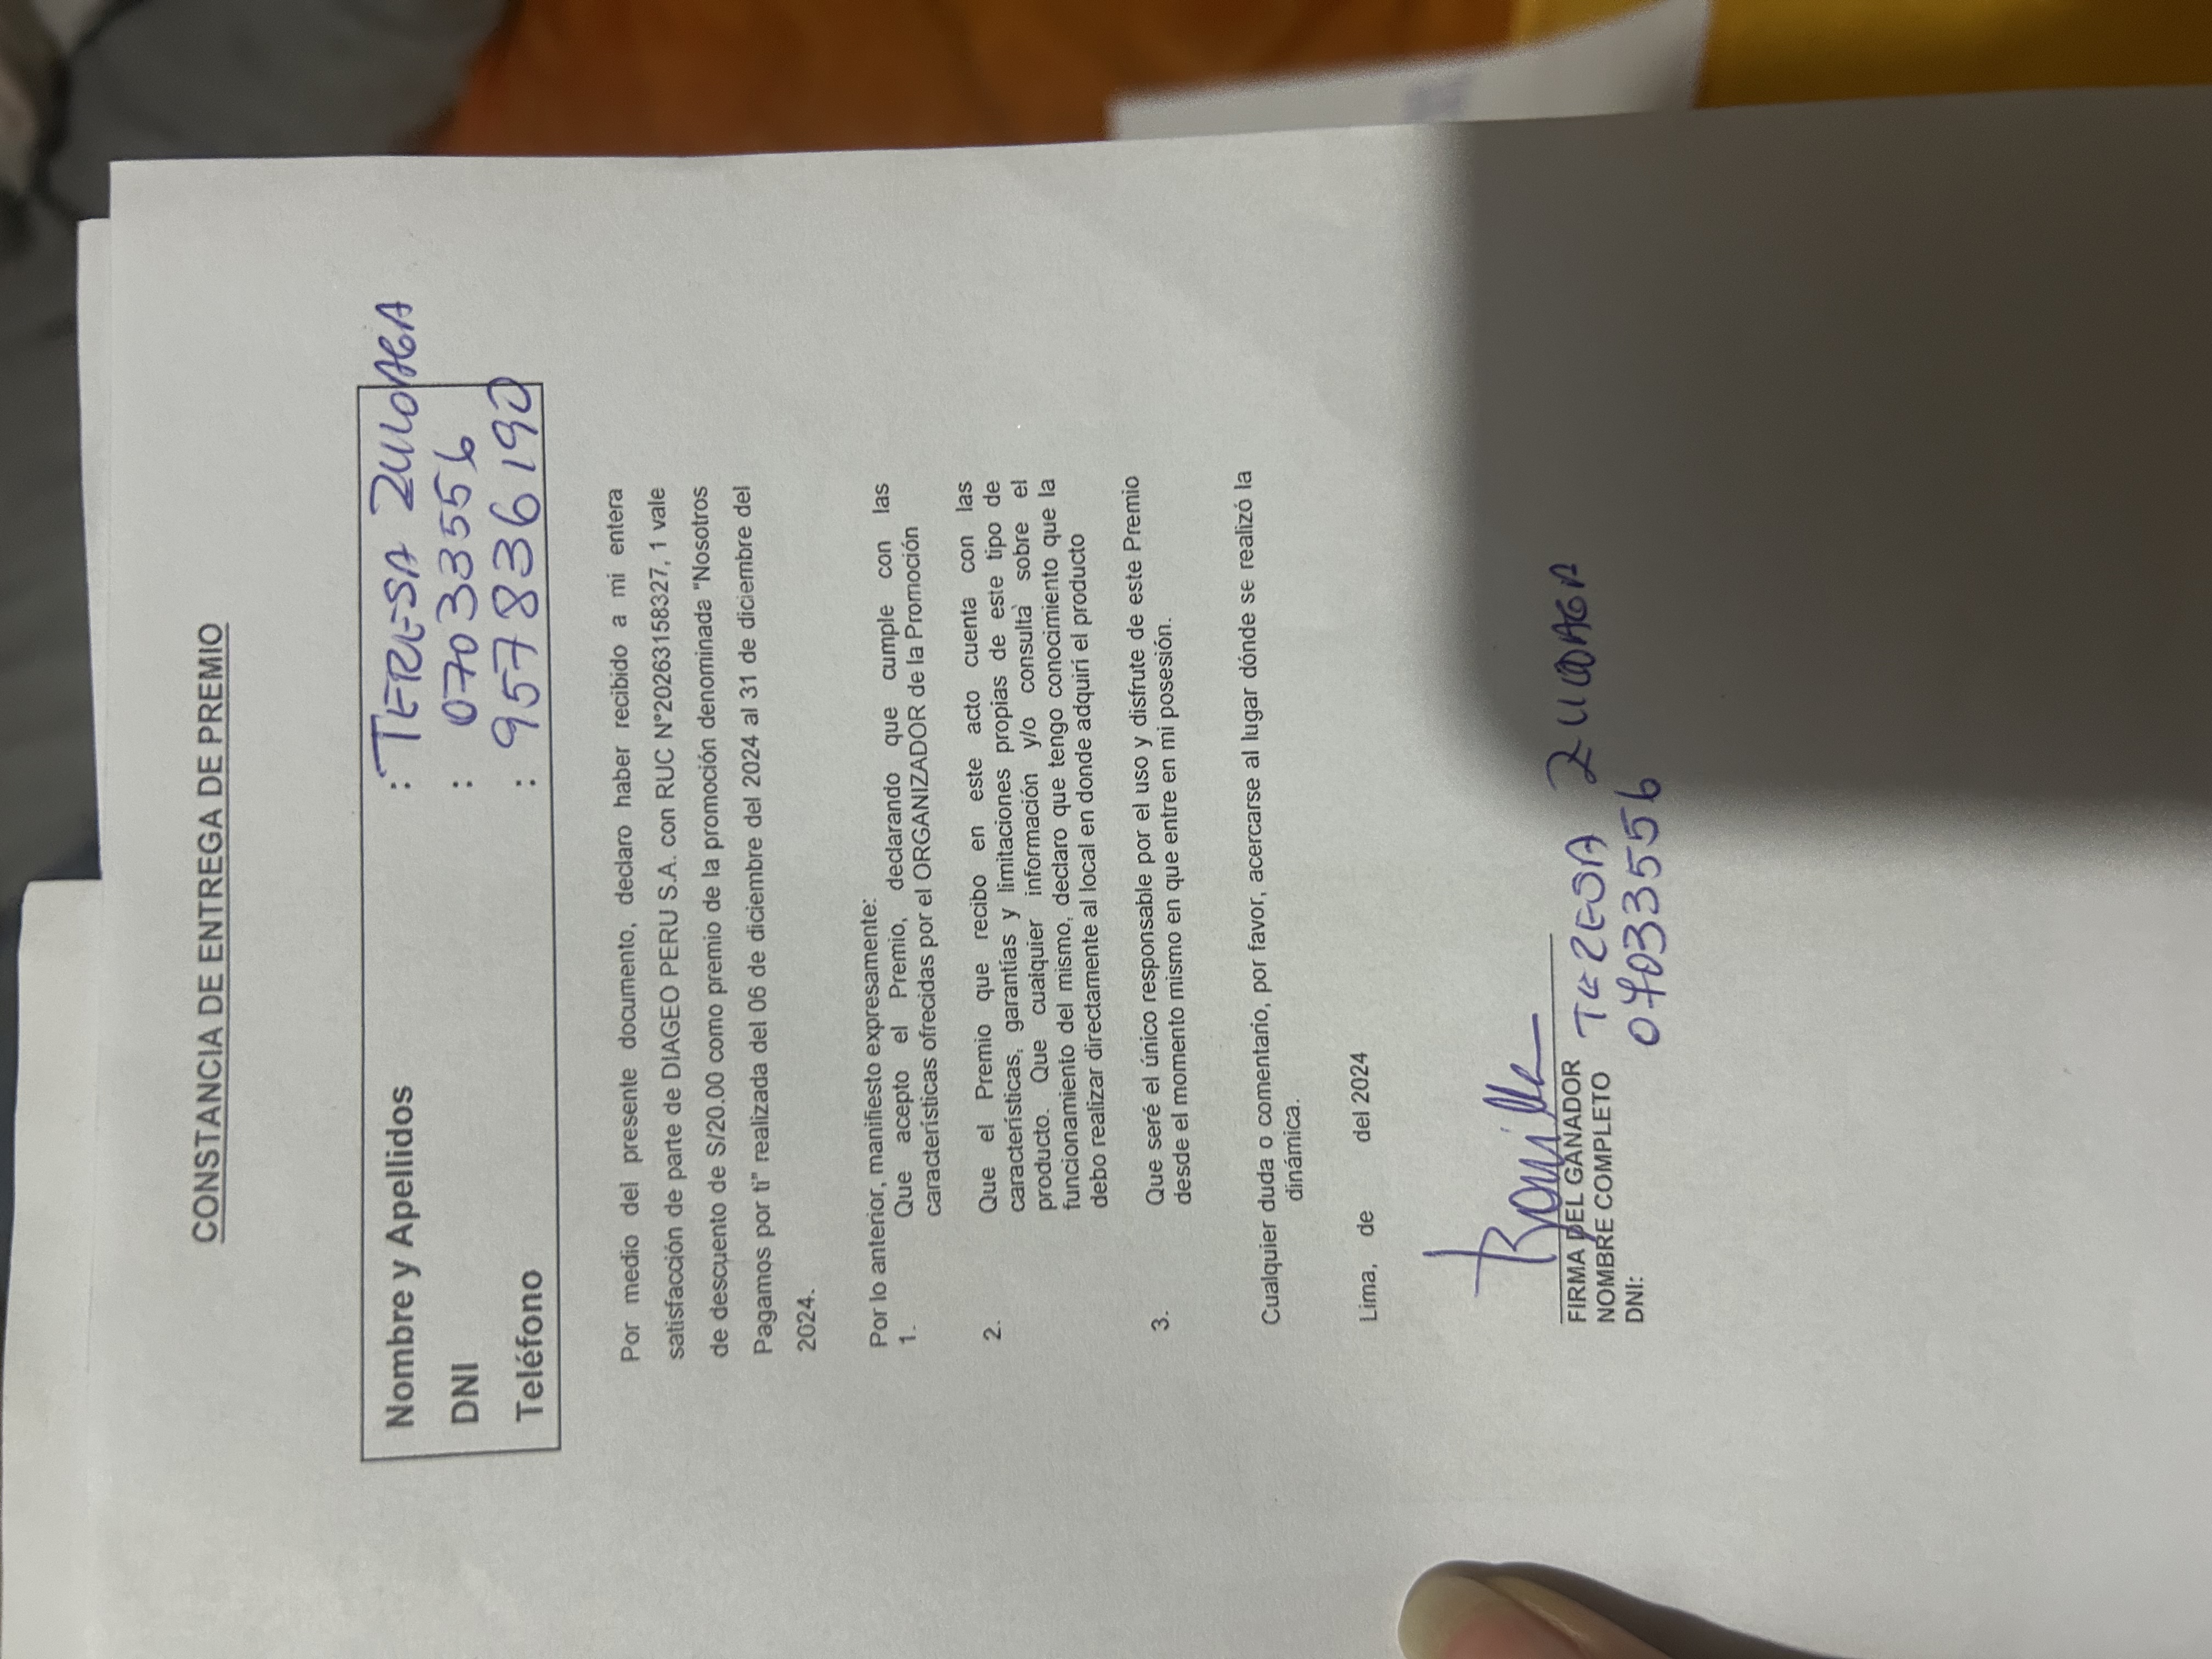 CONSTANCIA DE ENTREGA DE PREMIO
Nombre y Apellidos : TERESA ZULOAGA
DNI : 07033556
Teléfono : 957836190
Por medio del presente documento, declaro haber recibido a mi entera
satisfacción de parte de DIAGEO PERU S.A. con RUC N°20263158327, 1 vale
de descuento de S/20.00 como premio de la promoción denominada "Nosotros
Pagamos por ti" realizada del 06 de diciembre del 2024 al 31 de diciembre del
2024.
Por lo anterior, manifiesto expresamente:
1. Que acepto el Premio, declarando que cumple con las
características ofrecidas por el ORGANIZADOR de la Promoción
2. Que el Premio que recibo en este acto cuenta con las
características, garantías y limitaciones propias de este tipo de
producto. Que cualquier información y/o consulta sobre el
funcionamiento del mismo, declaro que tengo conocimiento que la
debo realizar directamente al local en donde adquirí el producto
3. Que seré el único responsable por el uso y disfrute de este Premio
desde el momento mismo en que entre en mi posesión.
Cualquier duda o comentario, por favor, acercarse al lugar dónde se realizó la
dinámica.
Lima, de del 2024
FIRMA DEL GANADOR
NOMBRE COMPLETO TERESA ZULOAGA
DNI: 07033556